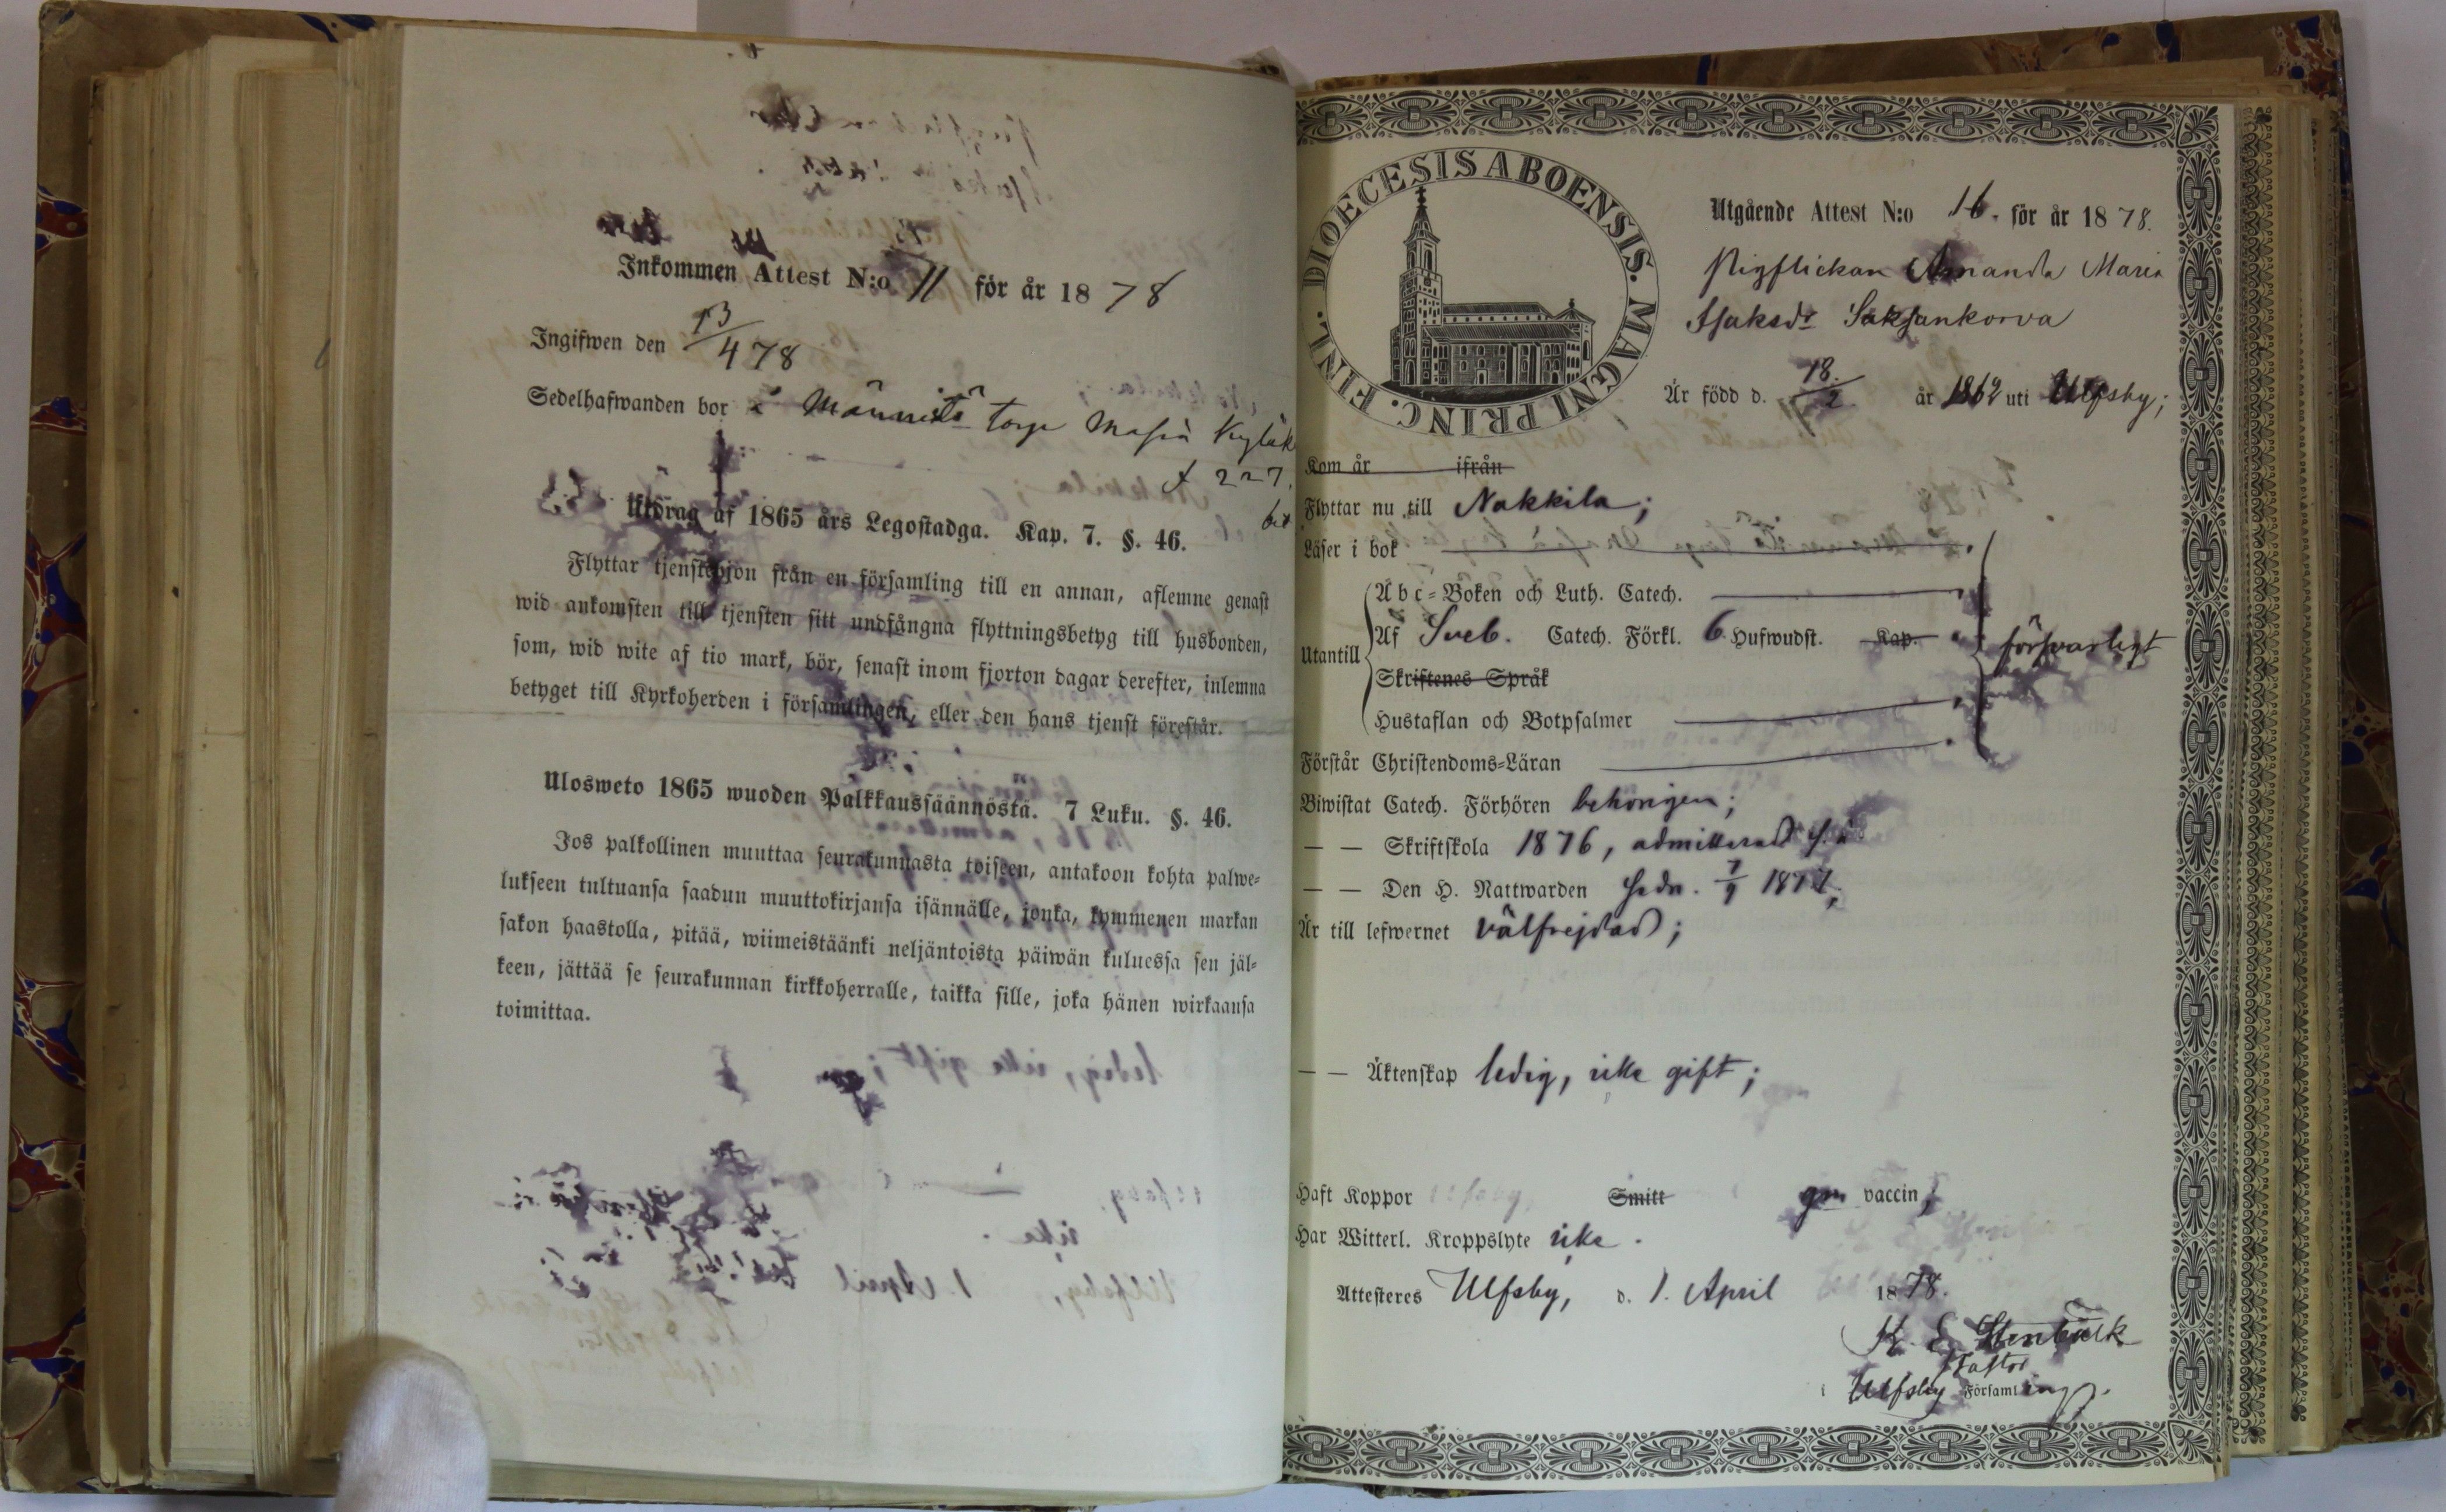 Inkommen Attest N:o 11 för år 1878
Ingifwen den 13/4 78
Sedelhafwanden bor i Männistö torp
227.
Utdrag af 1865 års Legostadga. Kap. 7. §. 46.
Flyttar tjenstehjon från en församling till en annan, aflemne genast
wid ankomsten till tjensten sitt undfångna flyttningsbetyg till husbonden,
som, wid wite af tio mark, bör, senast inom fjorton dagar derefter, inlemna
betyget till Kyrkoherden i församlingen, eller den hans tjenst förestår.
Ulosweto 1865 wuoden Palkkaussäännöstä. 7 Luku. §. 46.
Jos palkollinen muuttaa seurakunnasta toiseen, antakoon kohta palwe=
lukseen tultuansa saadun muuttokirjansa isännälle, jonka, kymmenen markan
sakon haastolla, pitää, wiimeistäänki neljäntoista päiwän kuluessa sen jäl=
keen, jättää se seurakunnan kirkkoherralle, taikka sille, joka hänen wirkaansa
toimittaa.
DIOECESIS ABOENSIS. MAGNI PRINC. FINL.
Utgående Attest N:o 16. för år 1878.
Pigflickan Amanda Maria
Isaksdr Saksankorva
Är född d. 18/2 år 1862 uti Ulfsby;
Kom år ifrån
Flyttar nu till Nakkila;
Läser i bok
Abc=Boken och Luth. Catech.
Utantill Af Sveb. Catech. Förkl. 6 Hufwudst. Kap. försvarligt
Skriftenes Språk
Hustaflan och Botpsalmer
Förstår Christendoms=Läran
Biwistat Catech. Förhören behörigen;
— — Skriftskola 1876, admitterad s. å.
— — Den H. Nattwarden sedn. 7/9 1877;
Är till lefwernet välfrejdad;
— — Äktenskap ledig, icke gift;
Haft Koppor Smitt gm vaccin,
Har Witterl. Kroppslyte icke.
Attesteres Ulfsby, d. 1. April 1878.
K. E. Stenbäck
Pastor
i Ulfsby Församling.